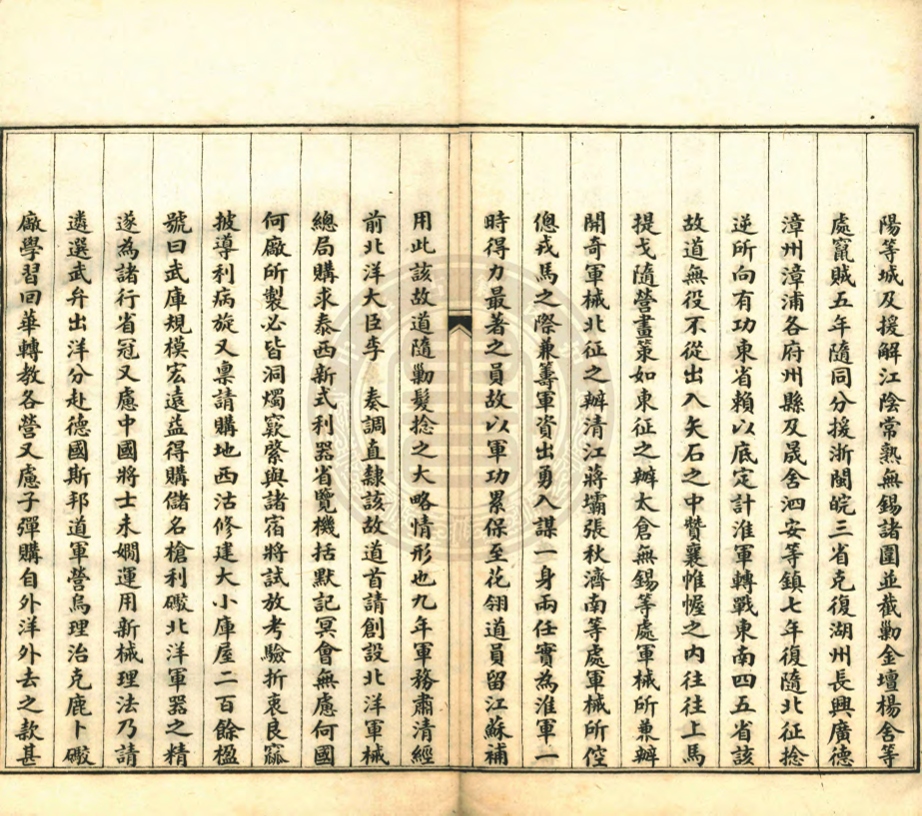 陽等城及援解江陰常熟無錫諸圍並截勦金壇楊舍等
處竄賊五年隨同分援浙閩皖三省克復湖州長興廣德
漳州漳浦各府州縣及晟舍泗安等鎮七年復隨北征捻
逆所向有功東省賴以底定計淮軍轉戰東南四五省該
故道無役不從出入矢石之中贊襄帷幄之内往往上馬
提戈隨營畫策如東征之辦太倉無錫等處軍械所兼辦
開奇軍械北征之辦清江蔣壩張秋濟南等處軍械所倥
傯戎馬之際兼籌軍資出勇入謀一身兩任實為淮軍一
時得力最著之員故以軍功累保至花翎道員留江蘇補
用此該故道隨勦髮捻之大略情形也九年軍務肅清經
前北洋大臣李 奏調直隸該故道首請創設北洋軍械
總局購求泰西新式利器省覽機括默記冥會無慮何國
何廠所製必皆洞燭窾綮與諸宿將試放考驗折衷良窳
披導利病旋又禀請購地西沽修建大小庫屋二百餘楹
號曰武庫規模宏遠益得購儲名槍利礮北洋軍器之精
遂為諸行省冠又慮中國將士未嫺運用新械理法乃請
遴選武弁出洋分赴德國斯邦道軍營烏理治克鹿卜礮
廠學習回華轉教各營又慮子彈購自外洋外去之款甚